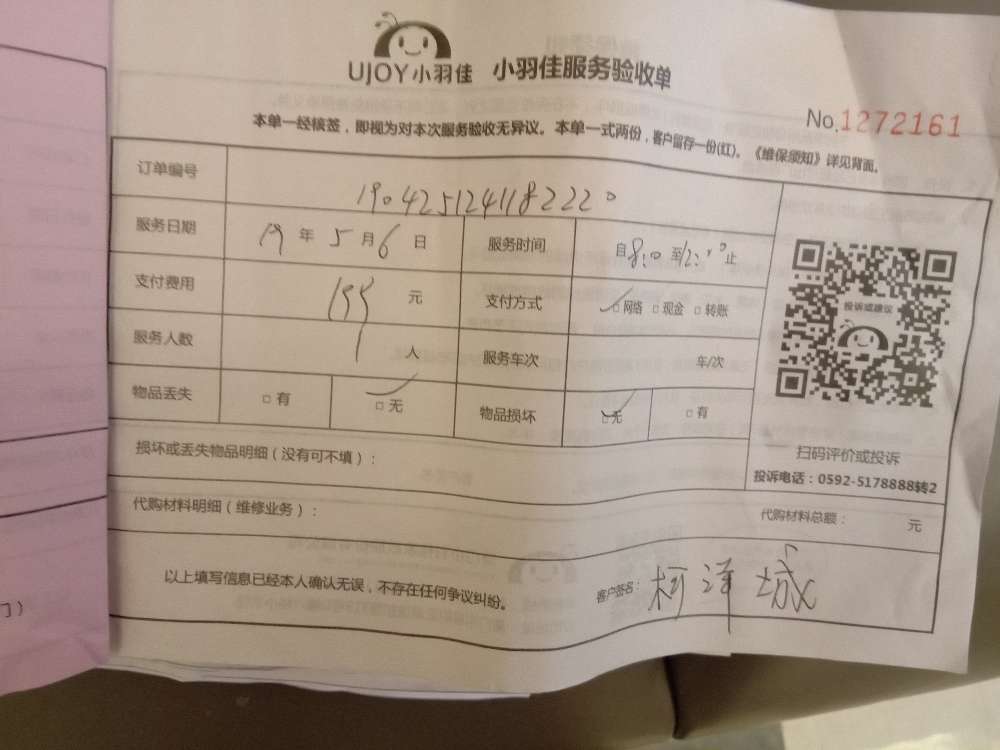 UJOY小羽佳 小羽佳服务验收单
No.1272161
本单一经核签，即视为对本次服务验收无异议。本单一式两份，客户留存一份(红)。《维保须知》详见背面。
订单编号 190425124118222
服务日期 19 年 5 月 6 日 服务时间 自8:00 至12:00止
支付费用 199 元 支付方式 □网络 □现金 □转账
服务人数 1 人 服务车次 车/次
物品丢失 □有 □无 物品损坏 □无 □有
投诉或建议
扫码评价或投诉
投诉电话：0592-5178888转2
损坏或丢失物品明细（没有可不填）：
代购材料明细（维修业务）： 代购材料总额： 元
以上填写信息已经本人确认无误，不存在任何争议纠纷。 客户签名：柯泽城
门）